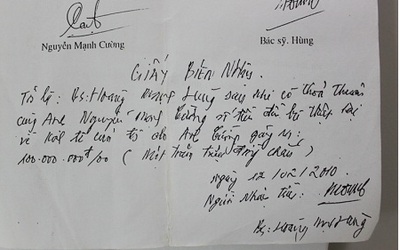 Nguyễn Mạnh Cường Bác sỹ. Hùng
GIẤY BIÊN NHẬN.
Tôi là: Bs: Hoàng Mạnh Hùng sau khi có thoả thuận
cùng Anh Nguyễn Mạnh Cường số tiền đền bù thiệt hại
về kinh tế của tôi do Anh Cường gây ra:
100.000.000đ00 (Một trăm triệu đồng chẵn)
Ngày 12/02/2010
Người Nhận tiền:
Bs: Hoàng Mạnh Hùng